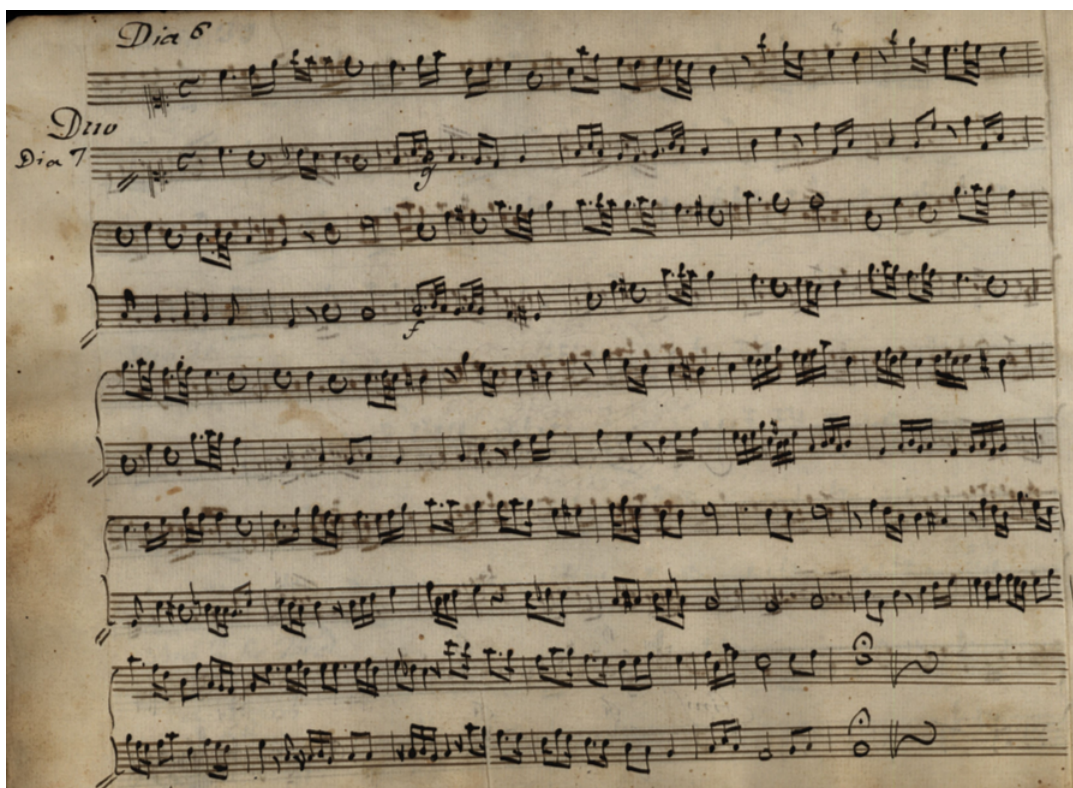 Dia 6
Duo
Dia 7
g
f